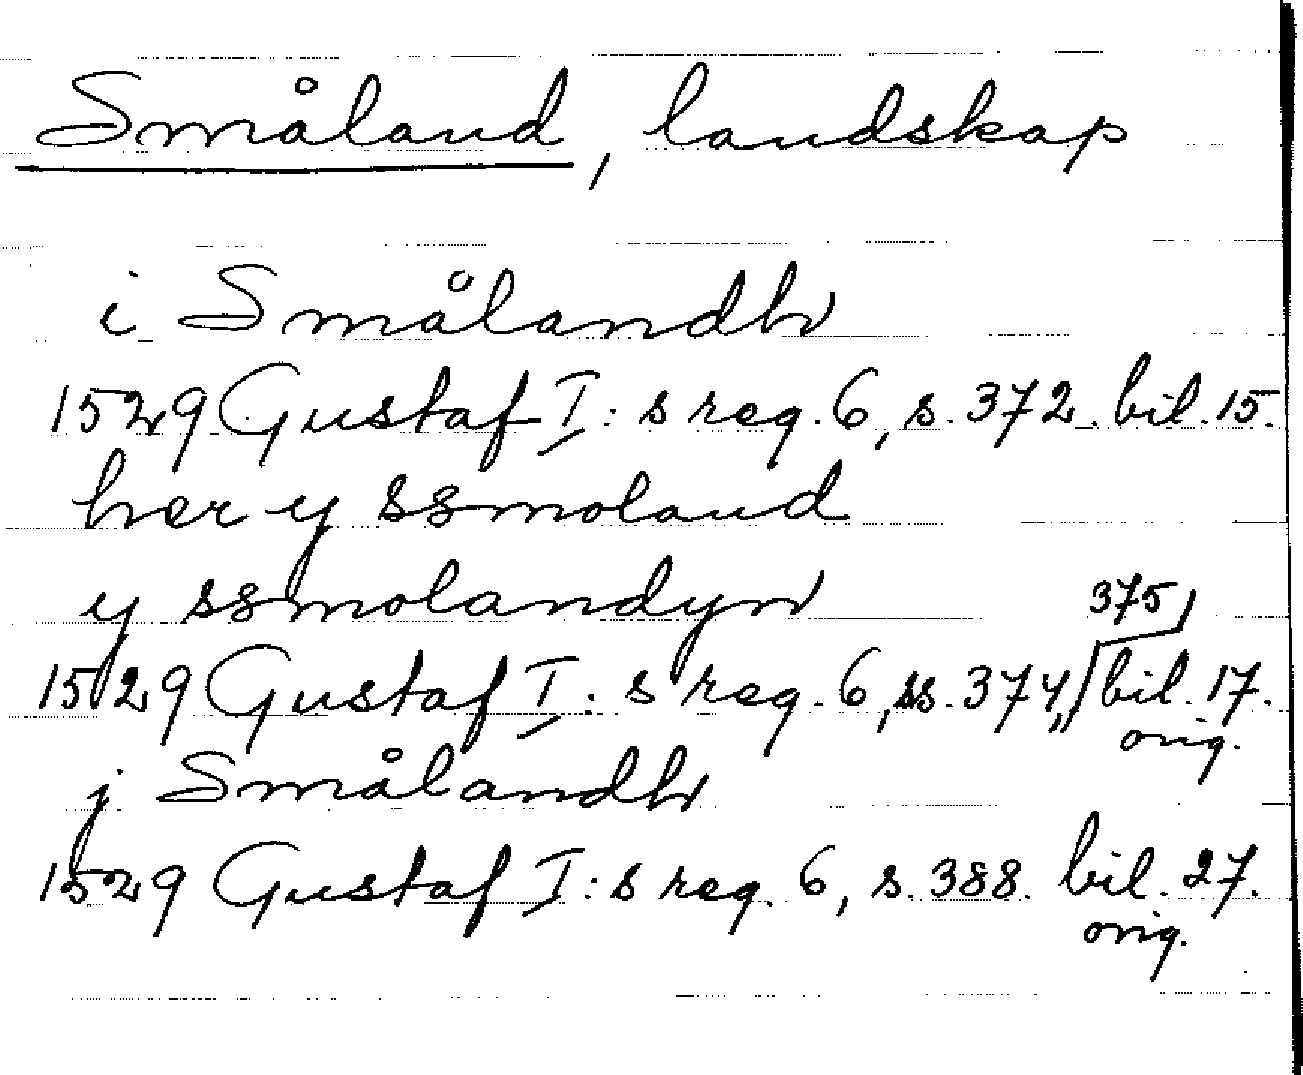 Småland, landskap
i Smålandh
1529 Gustaf I:s reg. 6, s. 372. bil. 15.
her y ssmoland
y ssmolandyn
375
1529 Gustaf I:s reg. 6, ss. 374, bil. 17.
orig.
j Smålandh
1529 Gustaf I:s reg. 6, s. 388. bil. 27.
orig.